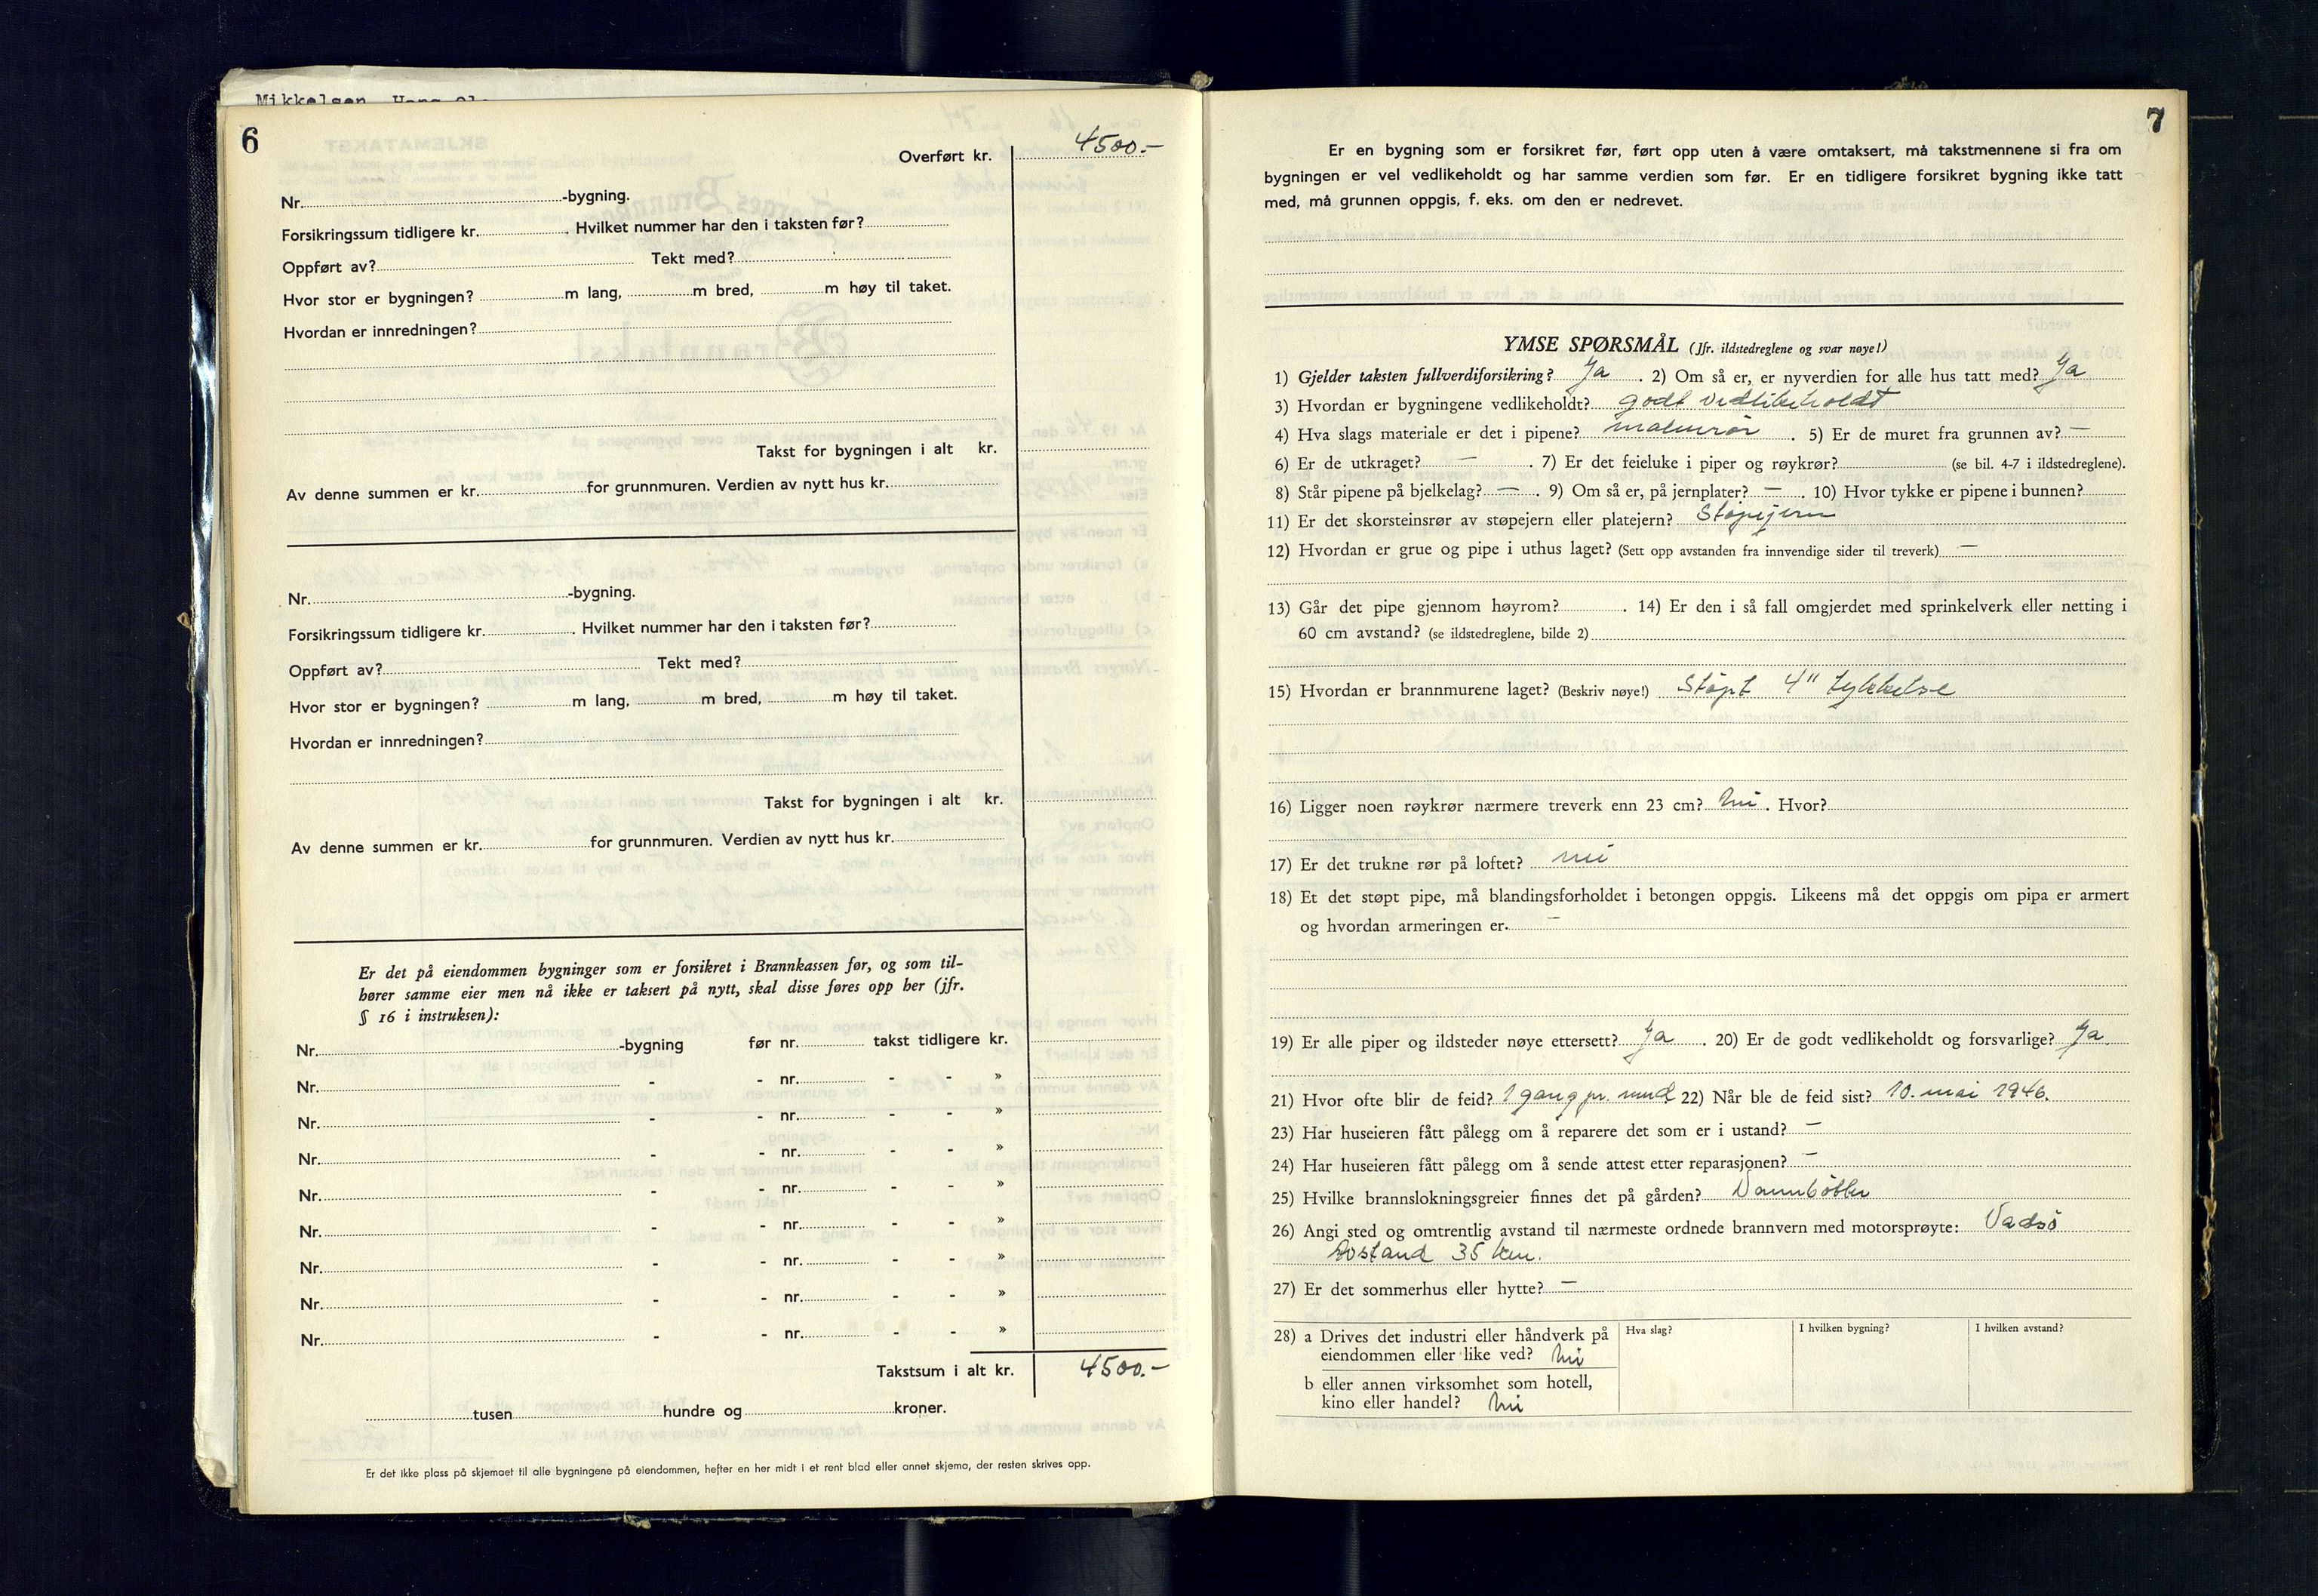 Mikkelsen, Hans
6
Overført kr. 4500.-
Nr. -bygning.
Forsikringssum tidligere kr. . Hvilket nummer har den i taksten før?
Oppført av? Tekt med?
Hvor stor er bygningen? m lang, m bred, m høy til taket.
Hvordan er innredningen?
Takst for bygningen i alt kr.
Av denne summen er kr. for grunnmuren. Verdien av nytt hus kr.
Nr. -bygning.
Forsikringssum tidligere kr. . Hvilket nummer har den i taksten før?
Oppført av? Tekt med?
Hvor stor er bygningen? m lang, m bred, m høy til taket.
Hvordan er innredningen?
Takst for bygningen i alt kr.
Av denne summen er kr. for grunnmuren. Verdien av nytt hus kr.
Er det på eiendommen bygninger som er forsikret i Brannkassen før, og som til-
hører samme eier men nå ikke er taksert på nytt, skal disse føres opp her (jfr.
§ 16 i instruksen):
Nr. -bygning før nr. takst tidligere kr.
Nr. - - nr. - - »
Nr. - - nr. - - »
Nr. - - nr. - - »
Nr. - - nr. - - »
Nr. - - nr. - - »
Nr. - - nr. - - »
Nr. - - nr. - - »
Nr. - - nr. - - »
Takstsum i alt kr. 4500.-
tusen hundre og kroner.
Er det ikke plass på skjemaet til alle bygningene på eiendommen, hefter en her midt i et rent blad eller annet skjema, der resten skrives opp.
7
Er en bygning som er forsikret før, ført opp uten å være omtaksert, må takstmennene si fra om
bygningen er vel vedlikeholdt og har samme verdien som før. Er en tidligere forsikret bygning ikke tatt
med, må grunnen oppgis, f. eks. om den er nedrevet.
YMSE SPØRSMÅL (Jfr. ildstedreglene og svar nøye!)
1) Gjelder taksten fullverdiforsikring? Ja . 2) Om så er, er nyverdien for alle hus tatt med? Ja
3) Hvordan er bygningene vedlikeholdt? godt vedlikeholdt
4) Hva slags materiale er det i pipene? . 5) Er de muret fra grunnen av? —
6) Er de utkraget? — . 7) Er det feieluke i piper og røykrør? (se bil. 4-7 i ildstedreglene).
8) Står pipene på bjelkelag? — . 9) Om så er, på jernplater? — . 10) Hvor tykke er pipene i bunnen?
11) Er det skorsteinsrør av støpejern eller platejern? Støpejern
12) Hvordan er grue og pipe i uthus laget? (Sett opp avstanden fra innvendige sider til treverk) —
13) Går det pipe gjennom høyrom? . 14) Er den i så fall omgjerdet med sprinkelverk eller netting i
60 cm avstand? (se ildstedreglene, bilde 2)
15) Hvordan er brannmurene laget? (Beskriv nøye!) Støpt 4" tykkelse
16) Ligger noen røykrør nærmere treverk enn 23 cm? Nei . Hvor?
17) Er det trukne rør på loftet? nei
18) Et det støpt pipe, må blandingsforholdet i betongen oppgis. Likeens må det oppgis om pipa er armert
og hvordan armeringen er. —
19) Er alle piper og ildsteder nøye ettersett? Ja . 20) Er de godt vedlikeholdt og forsvarlige? Ja.
21) Hvor ofte blir de feid? 1 gang pr. mnd 22) Når ble de feid sist? 10. mai 1946.
23) Har huseieren fått pålegg om å reparere det som er i ustand? —
24) Har huseieren fått pålegg om å sende attest etter reparasjonen? —
25) Hvilke brannslokningsgreier finnes det på gården? Vannbøtter
26) Angi sted og omtrentlig avstand til nærmeste ordnede brannvern med motorsprøyte: Vadsö
Avstand 35 km.
27) Er det sommerhus eller hytte? —
28) a Drives det industri eller håndverk på
eiendommen eller like ved? Nei
b eller annen virksomhet som hotell,
kino eller handel? Nei
Hva slag?
I hvilken bygning?
I hvilken avstand?